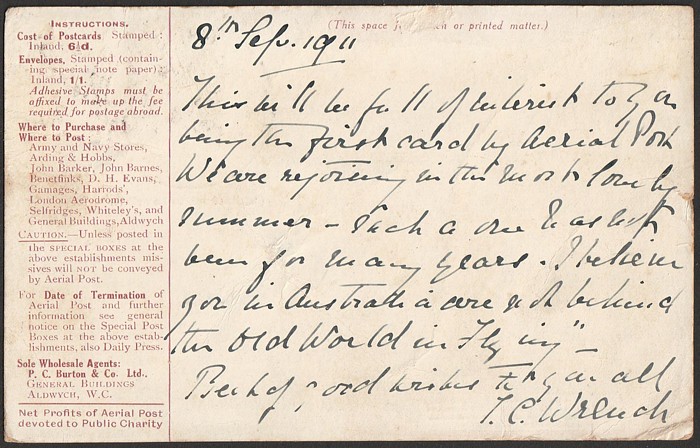 INSTRUCTIONS.
Cost of Postcards Stamped:
Inland, 6½d.
Envelopes, Stamped (contain-
ing special note paper):
Inland, 1/1.
Adhesive Stamps must be
affixed to make up the fee
required for postage abroad.
Where to Purchase and
Where to Post:
Army and Navy Stores,
Arding & Hobbs,
John Barker, John Barnes,
Benetfinks, D. H. Evans,
Gamages, Harrods',
London Aerodrome,
Selfridges, Whiteley's, and
General Buildings, Aldwych
CAUTION.—Unless posted in
the SPECIAL BOXES at the
above establishments mis-
sives will NOT be conveyed
by Aerial Post.
For Date of Termination of
Aerial Post and further
information see general
notice on the Special Post
Boxes at the above estab-
lishments, also Daily Press.
Sole Wholesale Agents:
P. C. Burton & Co. Ltd.,
GENERAL BUILDINGS
ALDWYCH, W.C.
Net Profits of Aerial Post
devoted to Public Charity
(This space or printed matter.)
8th Sep. 1911
This will be full of interest to you
being the first card by Aerial Post
We are rejoicing in the most lovely
summer - such a one has not
been for many years. I believe
you in Australia are not behind
the Old World in "Flying" -
Best of good wishes to you all
T. C. Wrench